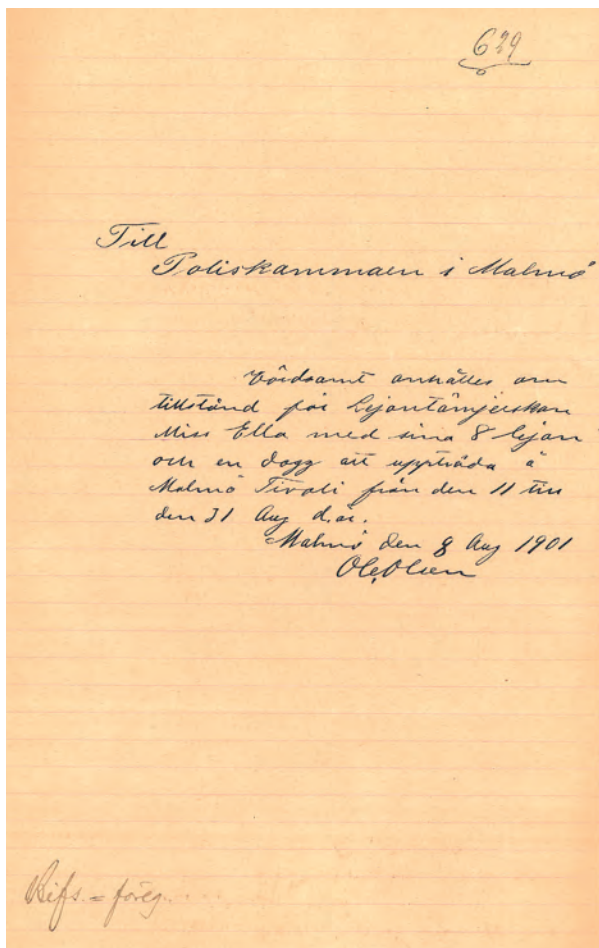 629
Till
Poliskammaen i Malmö
Vördsamt anhålles om
tillstånd för Lejontämjerskan
Miss Ella med sina 8 lejon
och en dogg att uppträda å
Malmö Tivoli från den 11 till
den 31 Aug d.år.
Malmö den 8 Aug 1901
Ole Olsen
Bifs. = föreg.